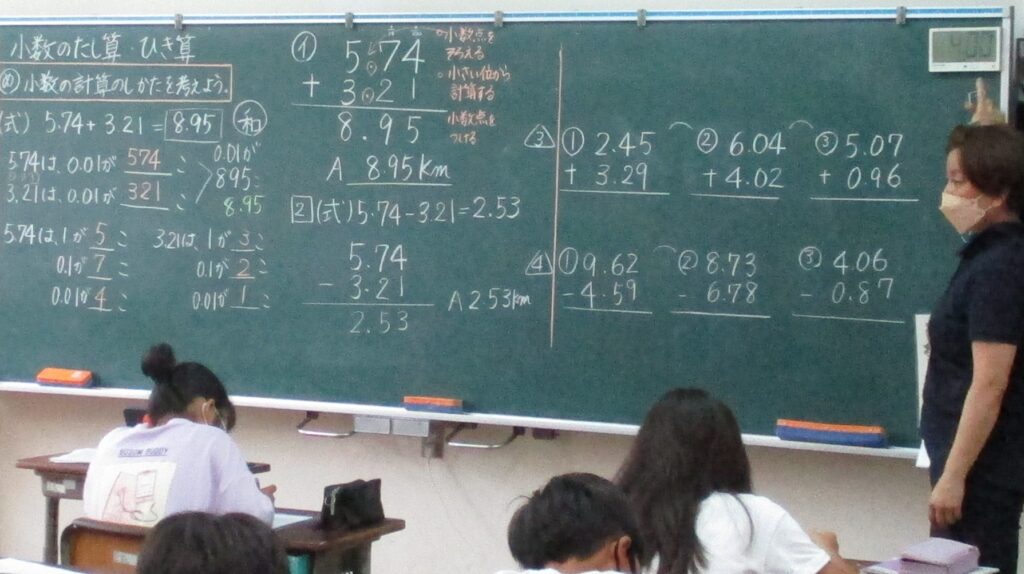 小数のたし算・ひき算
め 小数の計算のしかたを考えよう。
(式) 5.74+3.21=8.95 和
5.74は、0.01が 574 こ
3.21は、0.01が 321 こ
0.01が
895こ
8.95
5.74は、1が 5 こ
0.1が 7 こ
0.01が 4 こ
3.21は、1が 3 こ
0.1が 2 こ
0.01が 1 こ
① 5.74
+ 3.21
8.95
A 8.95km
小数点を
そろえる
小さい位から
計算する
小数点を
つける
2 (式) 5.74-3.21=2.53
5.74
- 3.21
2.53
A 2.53km
3 ① 2.45
+ 3.29
② 6.04
+ 4.02
③ 5.07
+ 0.96
4 ① 9.62
- 4.59
② 8.73
- 6.78
③ 4.06
- 0.87